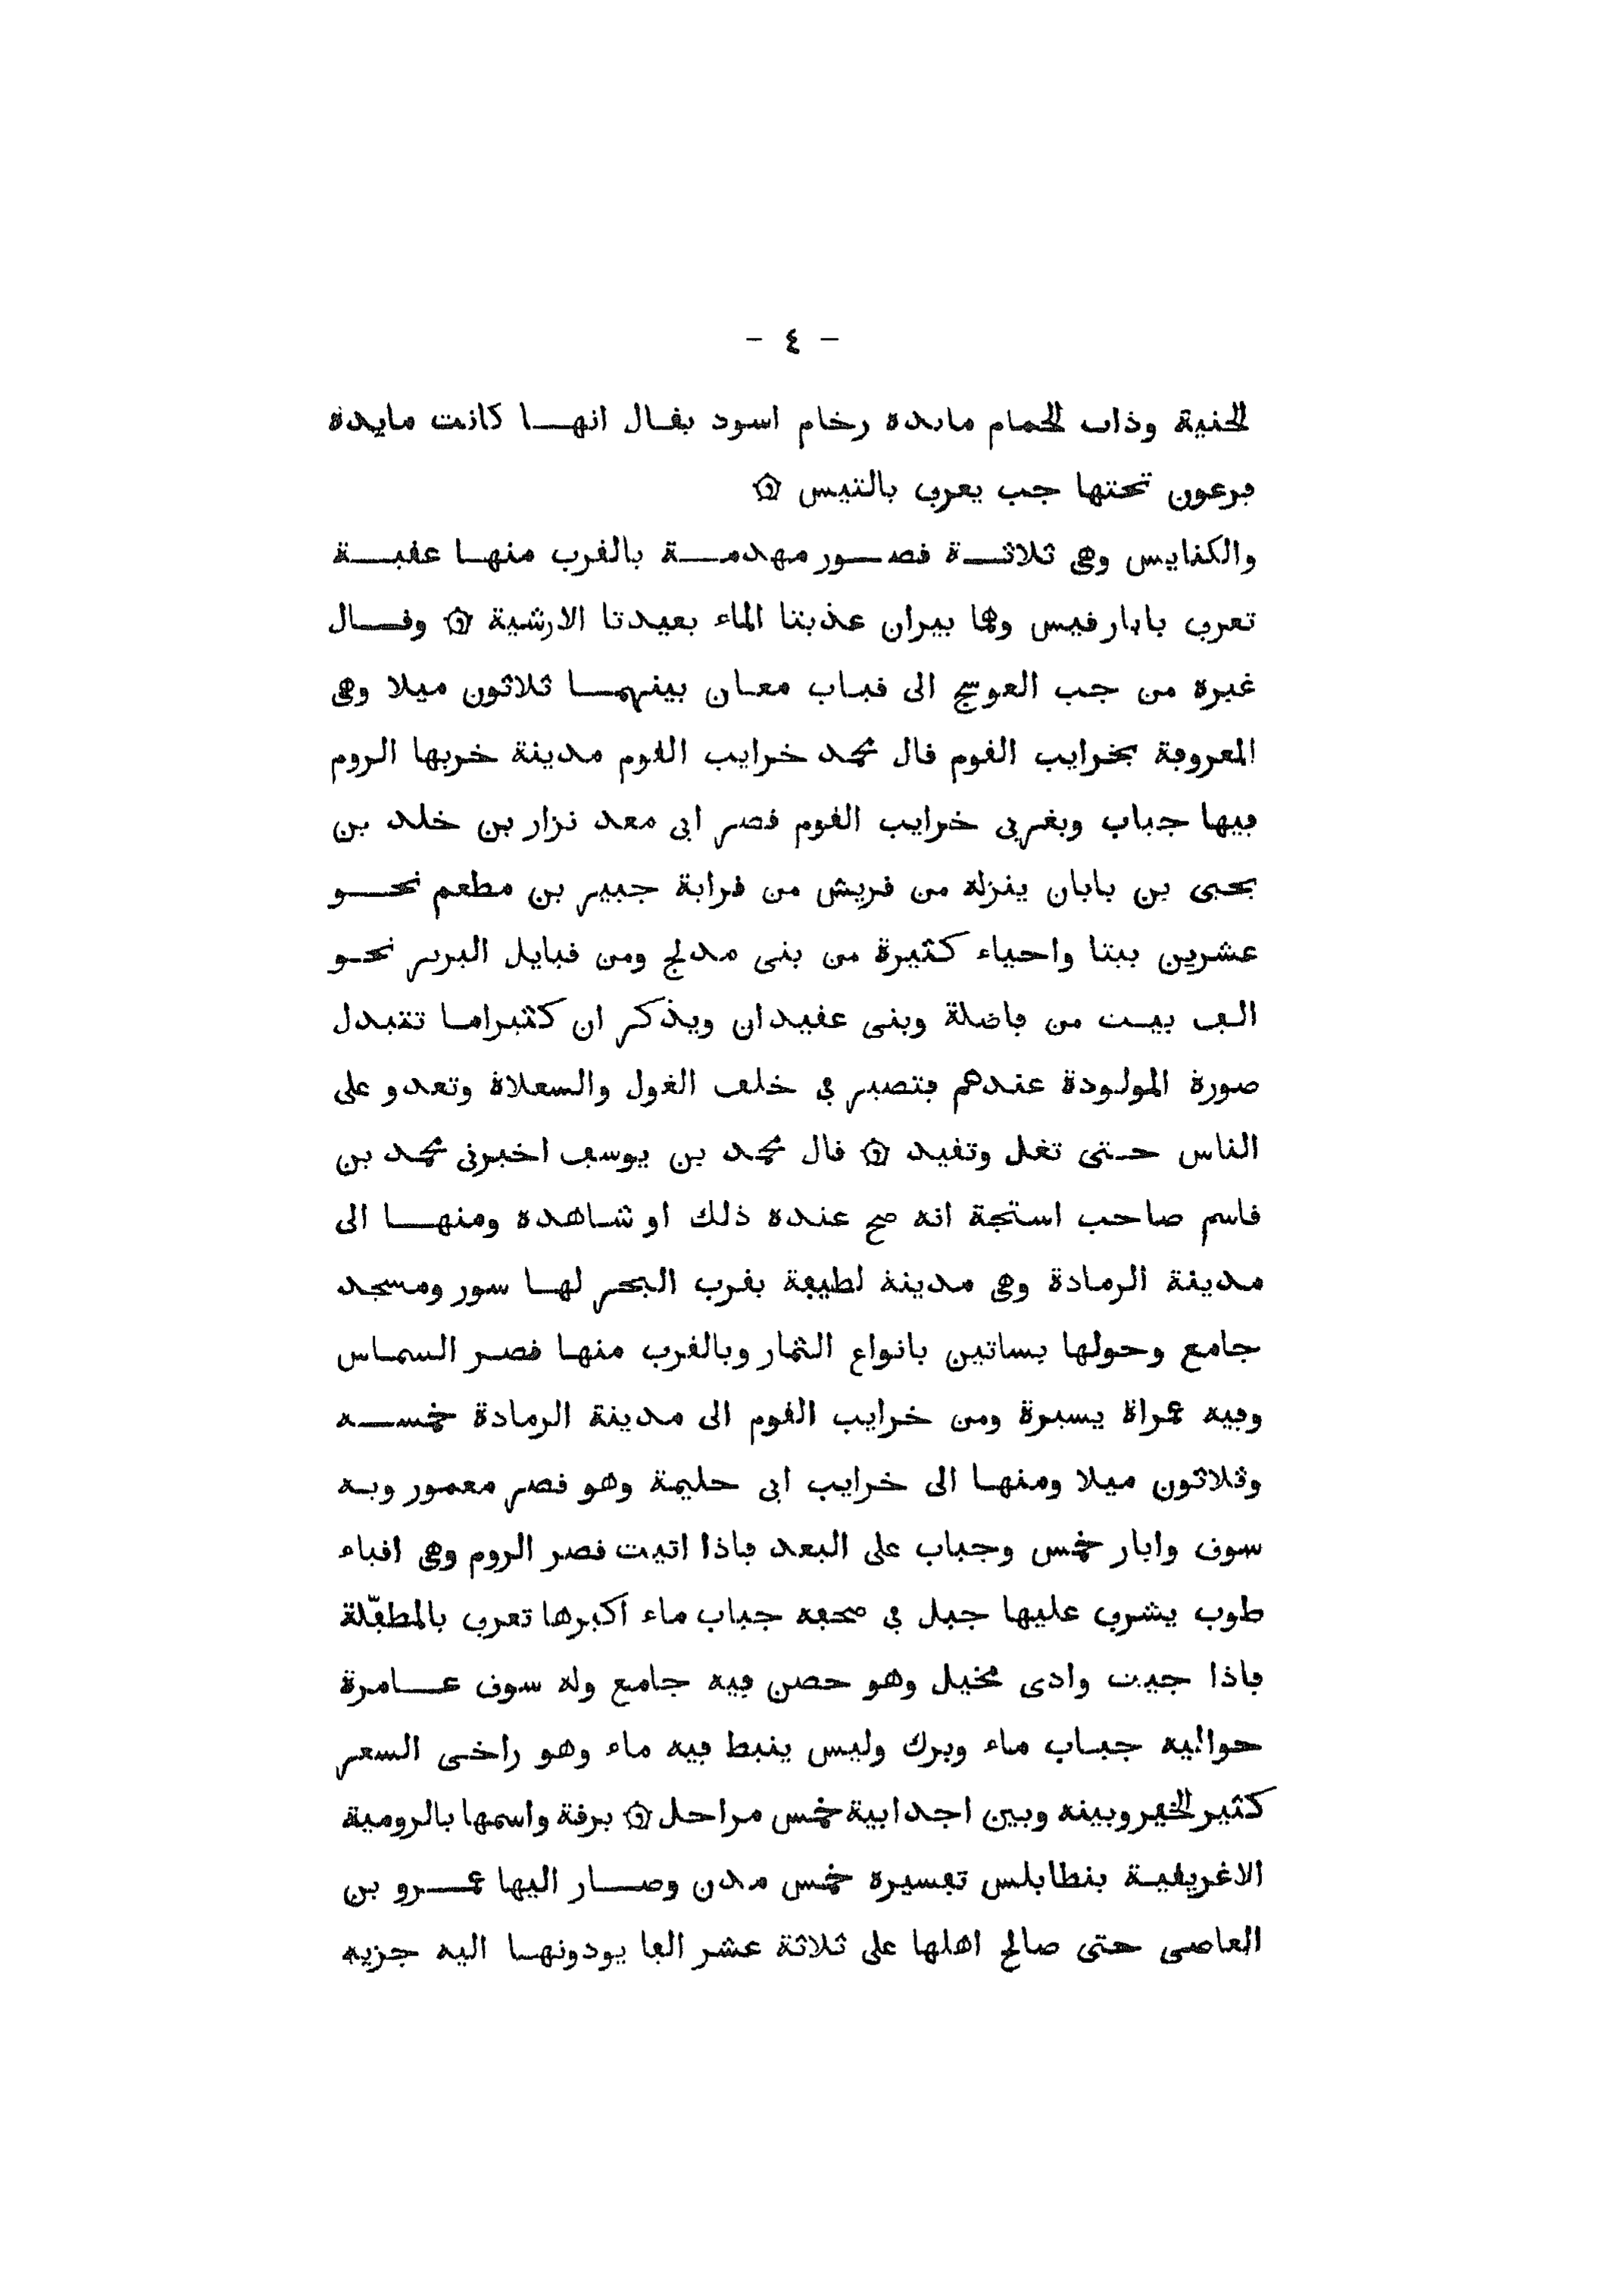 - ٤ -
الحنية وذات الحمام مايدة رخام اسود يقال انها كانت مايدة
فرعون تحتها جب يعرف بالتيس ۞
والكنايس وهى ثلاثة قصور مهدمة بالقرب منها عقبة
تعرف بابار قيس وهما بيران عذبتا الماء بعيدتا الارشية ۞ وقال
غيره من جب العوسج الى قباب معان بينهما ثلاثون ميلا وهى
المعروفة بخرايب القوم قال محمد خرايب القوم مدينة خربها الروم
فيها جباب وبغربى خرايب القوم قصر ابى معد نزار بن خلد بن
يحيى بن بابان ينزله من قريش من قرابة جبير بن مطعم نحو
عشرين بيتا واحياء كثيرة من بنى مدلج ومن قبايل البربر نحو
الف بيت من فاضلة وبنى عقيدان ويذكر ان كثيراما تتبدل
صورة المولودة عندهم فتصير فى خلف الغول والسعلاة وتعدو على
الناس حتى تغل وتقيد ۞ قال محمد بن يوسف اخبرنى محمد بن
قاسم صاحب استجة انه صح عنده ذلك او شاهده ومنها الى
مدينة الرمادة وهى مدينة لطيفة بقرب البحر لها سور ومسجد
جامع وحولها بساتين بانواع الثمار وبالقرب منها قصر السماس
وفيه عمراة يسيرة ومن خرايب القوم الى مدينة الرمادة خمسه
وثلاثون ميلا ومنها الى خرايب ابى حليمة وهو قصر معمور وبه
سوق وابار خمس وجباب على البعد فاذا اتيت قصر الروم وهى اقباء
طوب يشرف عليها جبل فى صحفه جباب ماء اكبرها تعرف بالمطفّلة
فاذا جيت وادى مخيل وهو حصن فيه جامع وله سوق عامرة
حواليه جباب ماء وبرك وليس ينبط فيه ماء وهو راخى السعر
كثير الخير وبينه وبين اجدابية خمس مراحل ۞ برقة واسمها بالرومية
الاغريقية بنطابلس تفسيره خمس مدن وصار اليها عمرو بن
العاصى حتى صالح اهلها على ثلاثة عشر الفا يودونها اليه جزيه